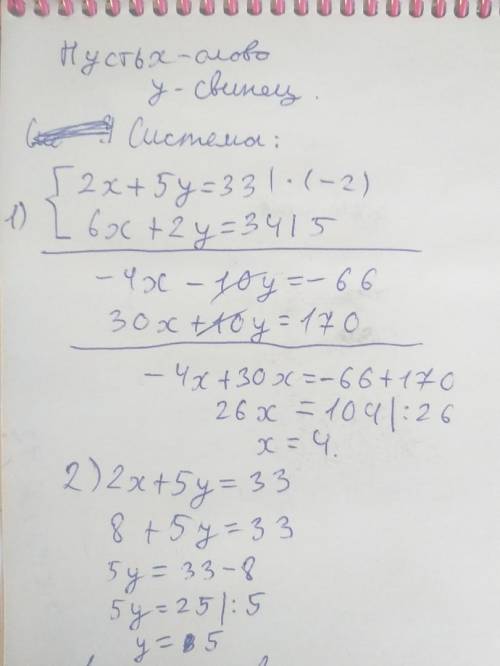 Пусть x-олово
y-свинец.
Система:
1) { 2x+5y=33 | ·(-2)
6x+2y=34 | 5
-4x-10y=-66
30x+10y=170
-4x+30x=-66+170
26x=104 |:26
x=4.
2) 2x+5y=33
8+5y=33
5y=33-8
5y=25 |:5
y=5